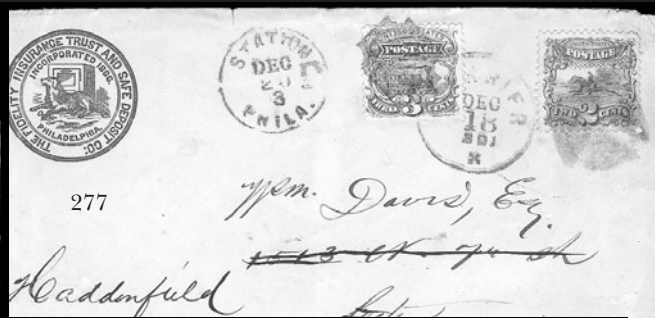 THE FIDELITY INSURANCE TRUST AND SAFE DEPOSIT CO:
INCORPORATED 1866
PHILADELPHIA
STATION E
DEC
20
3
PHILA.
UNITED STATES
POSTAGE
THREE 3 CENTS
CARRIER
DEC
18
3 DI
X
POSTAGE
TWO 2 CENTS
277
Wm. Davis, Esq.
1513 N. 7th St
Haddonfield